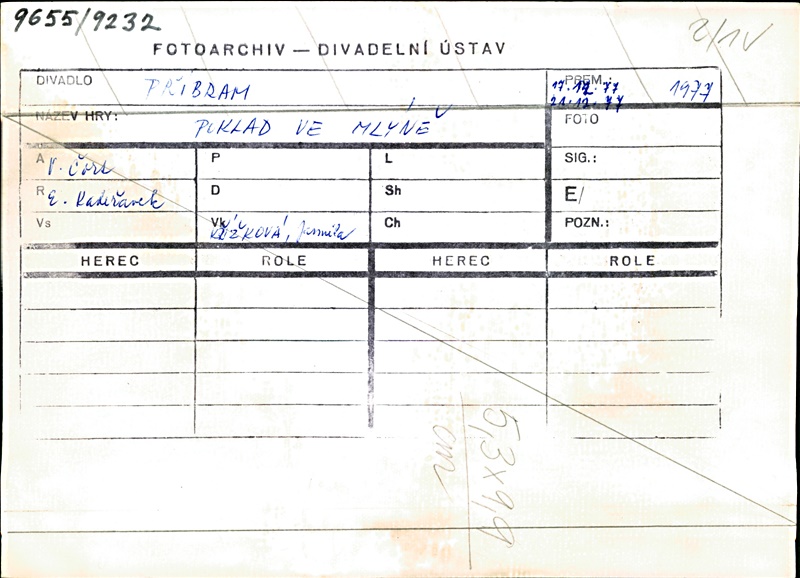 9655/9232
2/IV
FOTOARCHIV — DIVADELNÍ ÚSTAV
DIVADLO PŘÍBRAM
PREM.: 17.12.77 1977
21.12.77
NÁZEV HRY: POKLAD VE MLÝNĚ
FOTO
A V. Čort P L SIG.:
R E. Kadeřávek D Sh E/
Vs Vk KŘÍŽKOVÁ, Jarmila Ch POZN.:
HEREC ROLE HEREC ROLE
5,3x9,9
cm